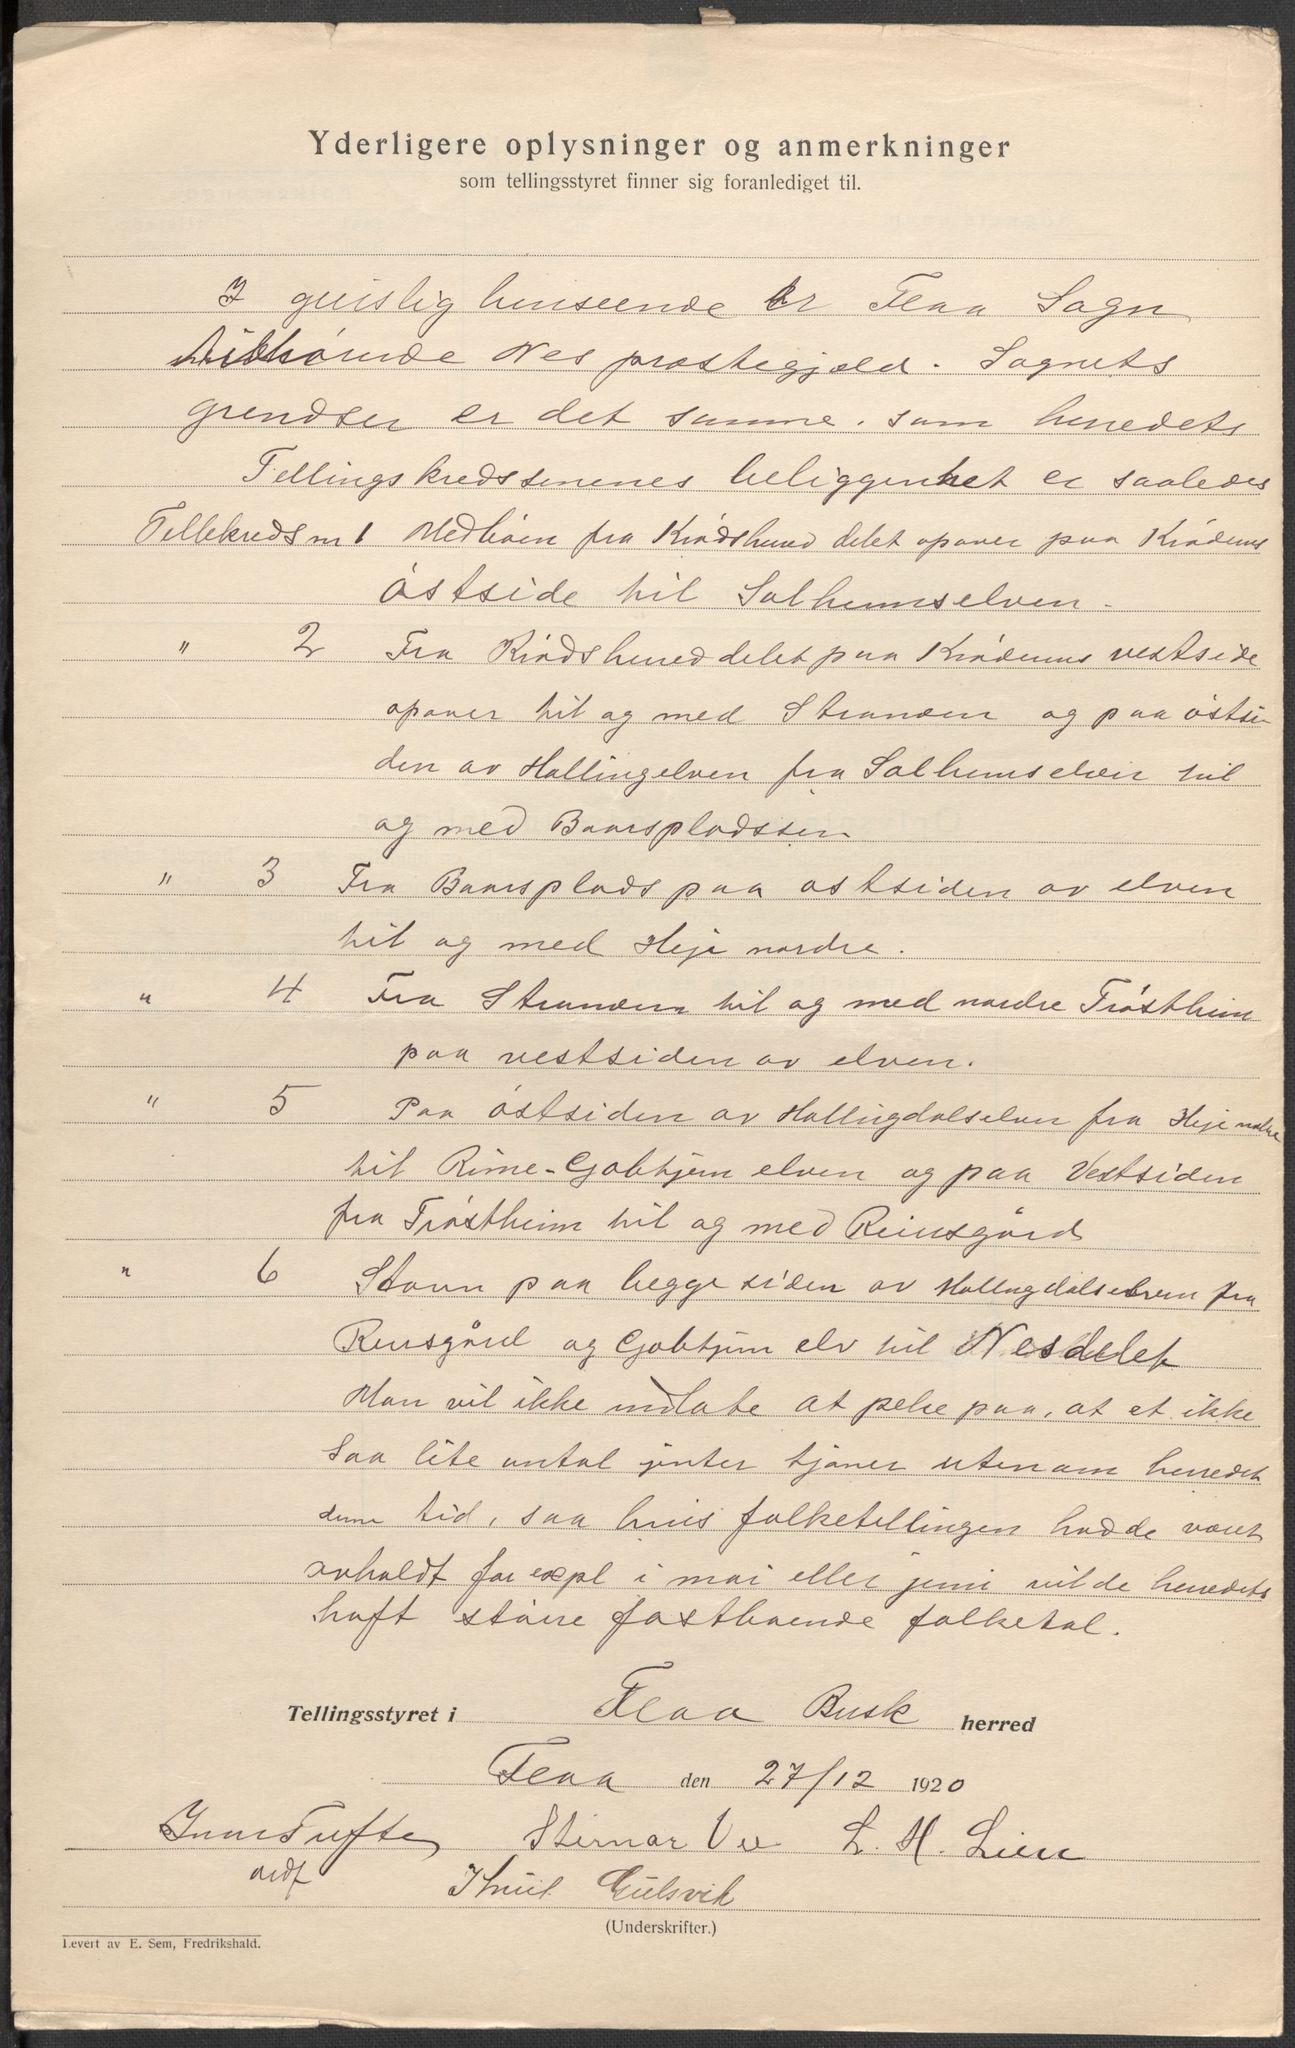 Yderligere oplysninger og anmerkninger
som tellingsstyret finner sig foranlediget til.
I geislig henseende er Flaa Sogn
tilhørende Nes prestegjæld. Sognets
grendser er det samme som herredets
Tellingskredssenenes beliggenhet er saaledes
Tellekreds nr 1 Medliøen fra Krødsherred delet opover paa Krødrens
østside til Solhemselven.
" 2 Fra Krødsherred delet paa Krødrens vestside
opover til og med Stranden og paa østsi-
den av Hallingelven fra Solhemselven til
og med Baarspladssen
" 3 Fra Baarsplads paa østsiden av elven
til og med Heje nordre.
" 4 Fra Stranden til og med nordre Trøstheim
paa vestsiden av elven.
" 5 Paa østsiden av Hallingdalselven fra Heje nordre
til Rime-Golthjem elven og paa Vestsiden
fra Trøstheim til og med Reinsgård
" 6 Stavn paa begge siden av Hallingdalselven fra
Reinsgård og Golthjem elv til Nesdelet
Man vil ikke undlate at peke paa, at et ikke
saa lite antal jenter tjener utenom herredet
denne tid, saa hvis folketellingen hadde været
avholdt for expl i mai eller juni vilde herredets
haft større fastboende folketal.
Tellingsstyret i Flaa Busk herred
Flaa den 27/12 1920
Tufte Steinar Ve L. H. Lien
ordf Knut Gulsvik
(Underskrifter.)
Levert av E. Sem, Fredrikshald.